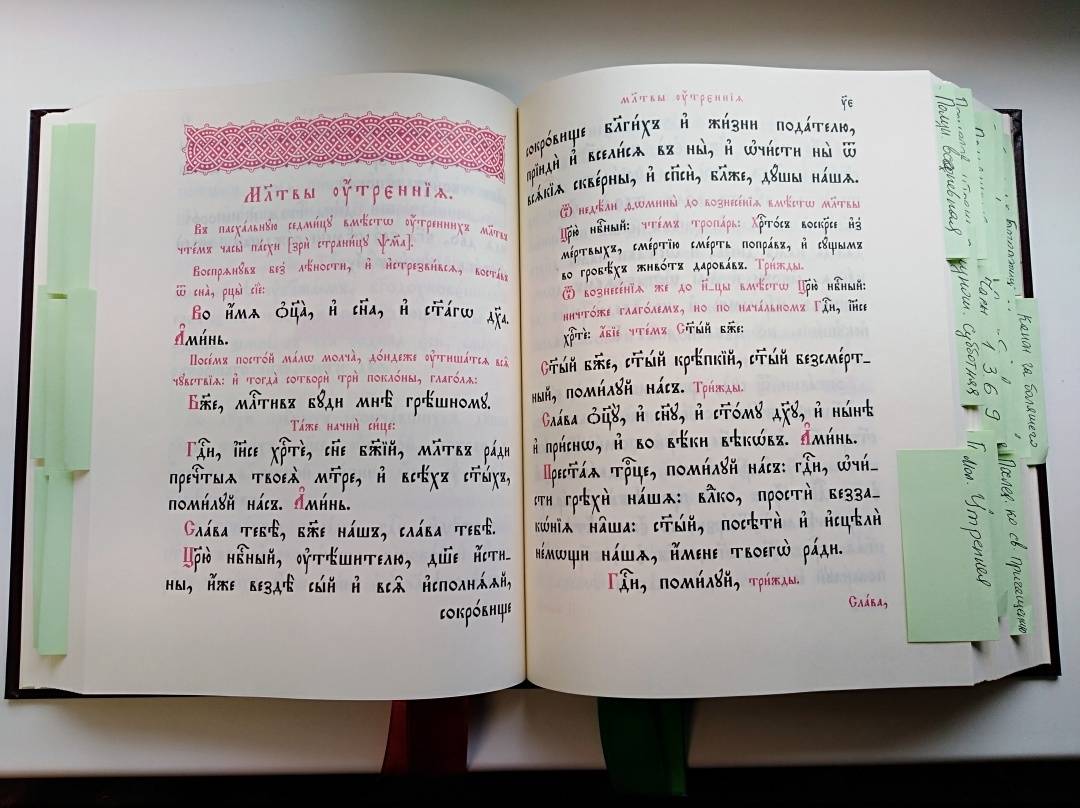 Мл҃твы ᲂу҆́треннїѧ.
Въ пасха́льную седми́цу вмѣ́стѡ ᲂу҆́треннихъ мл҃твъ
чте́мъ часы̀ па́схи [зрѝ страни́цу ѱм҃а].
Воспрѧнꙋ́въ без̾ лѣ́ности, и҆ и҆стрезви́всѧ, воста́въ
ѿ сна̀, рцы̀ сїѐ:
Во и҆́мѧ ѻ҆ц҃а̀, и҆ сн҃а, и҆ ст҃а́гѡ дх҃а.
А҆ми́нь.
Посе́мъ посто́й ма́лѡ молча̀, до́ндеже ᲂу҆тиша́тсѧ всѧ̑
чꙋ́вствїѧ: и҆ тогда̀ сотворѝ трѝ покло́ны, глаго́лѧ:
Бж҃е, млⷭ҇тивъ бꙋ́ди мнѣ̀ грѣ́шномꙋ.
Та́же начнѝ си́це:
Гдⷭ҇и, і҆и҃се хрⷭ҇тѐ, сн҃е бж҃їй, мл҃твъ ра́ди
пречⷭ҇тыѧ твоеѧ̀ мт҃ре, и҆ всѣ́хъ ст҃ы́хъ,
поми́лꙋй на́съ. А҆ми́нь.
Сла́ва тебѣ̀, бж҃е на́шъ, сла́ва тебѣ̀.
Цр҃ю̀ нбⷭ҇ный, ᲂу҆тѣ́шителю, дш҃е и҆́сти-
ны, и҆́же вездѣ̀ сы́й и҆ всѧ̑ и҆сполнѧ́ѧй,
сокро́вище
мл҃твы ᲂу҆́треннїѧ
ч҃е
сокро́вище бл҃ги́хъ и҆ жи́зни пода́телю,
прїидѝ и҆ всели́сѧ въ ны̀, и҆ ѡ҆чи́сти ны̀ ѿ
всѧ́кїѧ скве́рны, и҆ сп҃сѝ, бл҃же, дꙋ́шы на́шѧ.
Ѿ недѣ́ли ѳѡмины̀ до вознесе́нїѧ вмѣ́стѡ мл҃твы
Цр҃ю̀ нбⷭ҇ный: чте́мъ тропа́рь: Хрⷭ҇то́съ воскре́се и҆з̾
ме́ртвыхъ, сме́ртїю сме́рть попра́въ, и҆ сꙋ́щымъ
во гробѣ́хъ живо́тъ дарова́въ. Три́жды.
Ѿ вознесе́нїѧ же до н҃-цы вмѣ́стѡ Цр҃ю̀ нбⷭ҇ный:
ничто́же глаго́лемъ, но по нача́льномъ Гдⷭ҇и, і҆и҃се
хрⷭ҇тѐ: а҆́бїе чте́мъ Ст҃ы́й бж҃е:
Ст҃ы́й бж҃е, ст҃ы́й крѣ́пкїй, ст҃ы́й безсме́рт-
ный, поми́лꙋй на́съ. Три́жды.
Сла́ва ѻ҆ц҃ꙋ̀, и҆ сн҃ꙋ, и҆ ст҃о́мꙋ дх҃ꙋ, и҆ ны́нѣ
и҆ при́снѡ, и҆ во вѣ́ки вѣкѡ́въ. А҆ми́нь.
Прест҃а́ѧ трⷪ҇це, поми́лꙋй на́съ: гдⷭ҇и, ѡ҆чи́-
сти грѣхѝ на́шѧ: влⷣко, простѝ безза-
кѡ́нїѧ на̑ша: ст҃ы́й, посѣтѝ и҆ и҆сцѣлѝ
не́мѡщи на́шѧ, и҆́мене твоегѡ̀ ра́ди.
Гдⷭ҇и, поми́лꙋй, три́жды.
Сла́ва,
Полунощ вседневная
полунощ. субботная
Чин 1 3 6 9
Канон за болящего
Послед. ко св. причащению
Утренняя